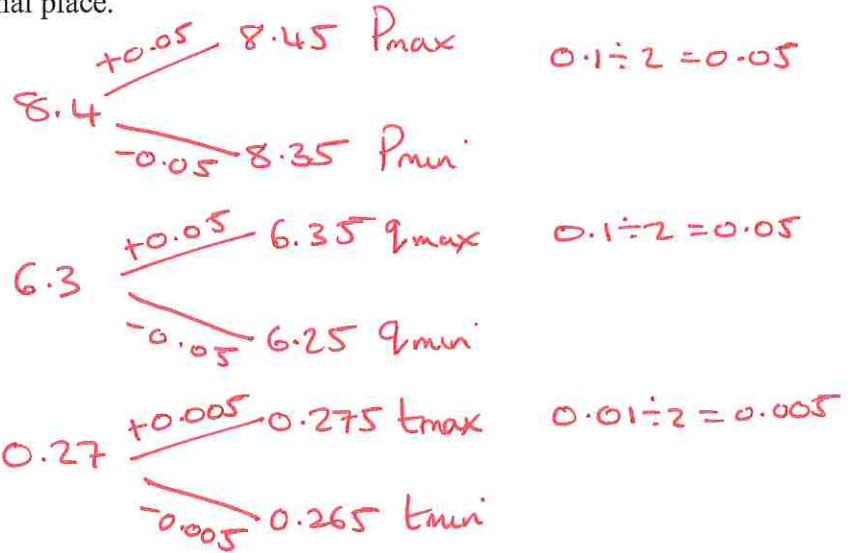 place.
+0.05 8.45 Pmax 0.1÷2=0.05
8.4
-0.05 8.35 Pmin
+0.05 6.35 qmax 0.1÷2=0.05
6.3
-0.05 6.25 qmin
+0.005 0.275 tmax 0.01÷2=0.005
0.27
-0.005 0.265 tmin